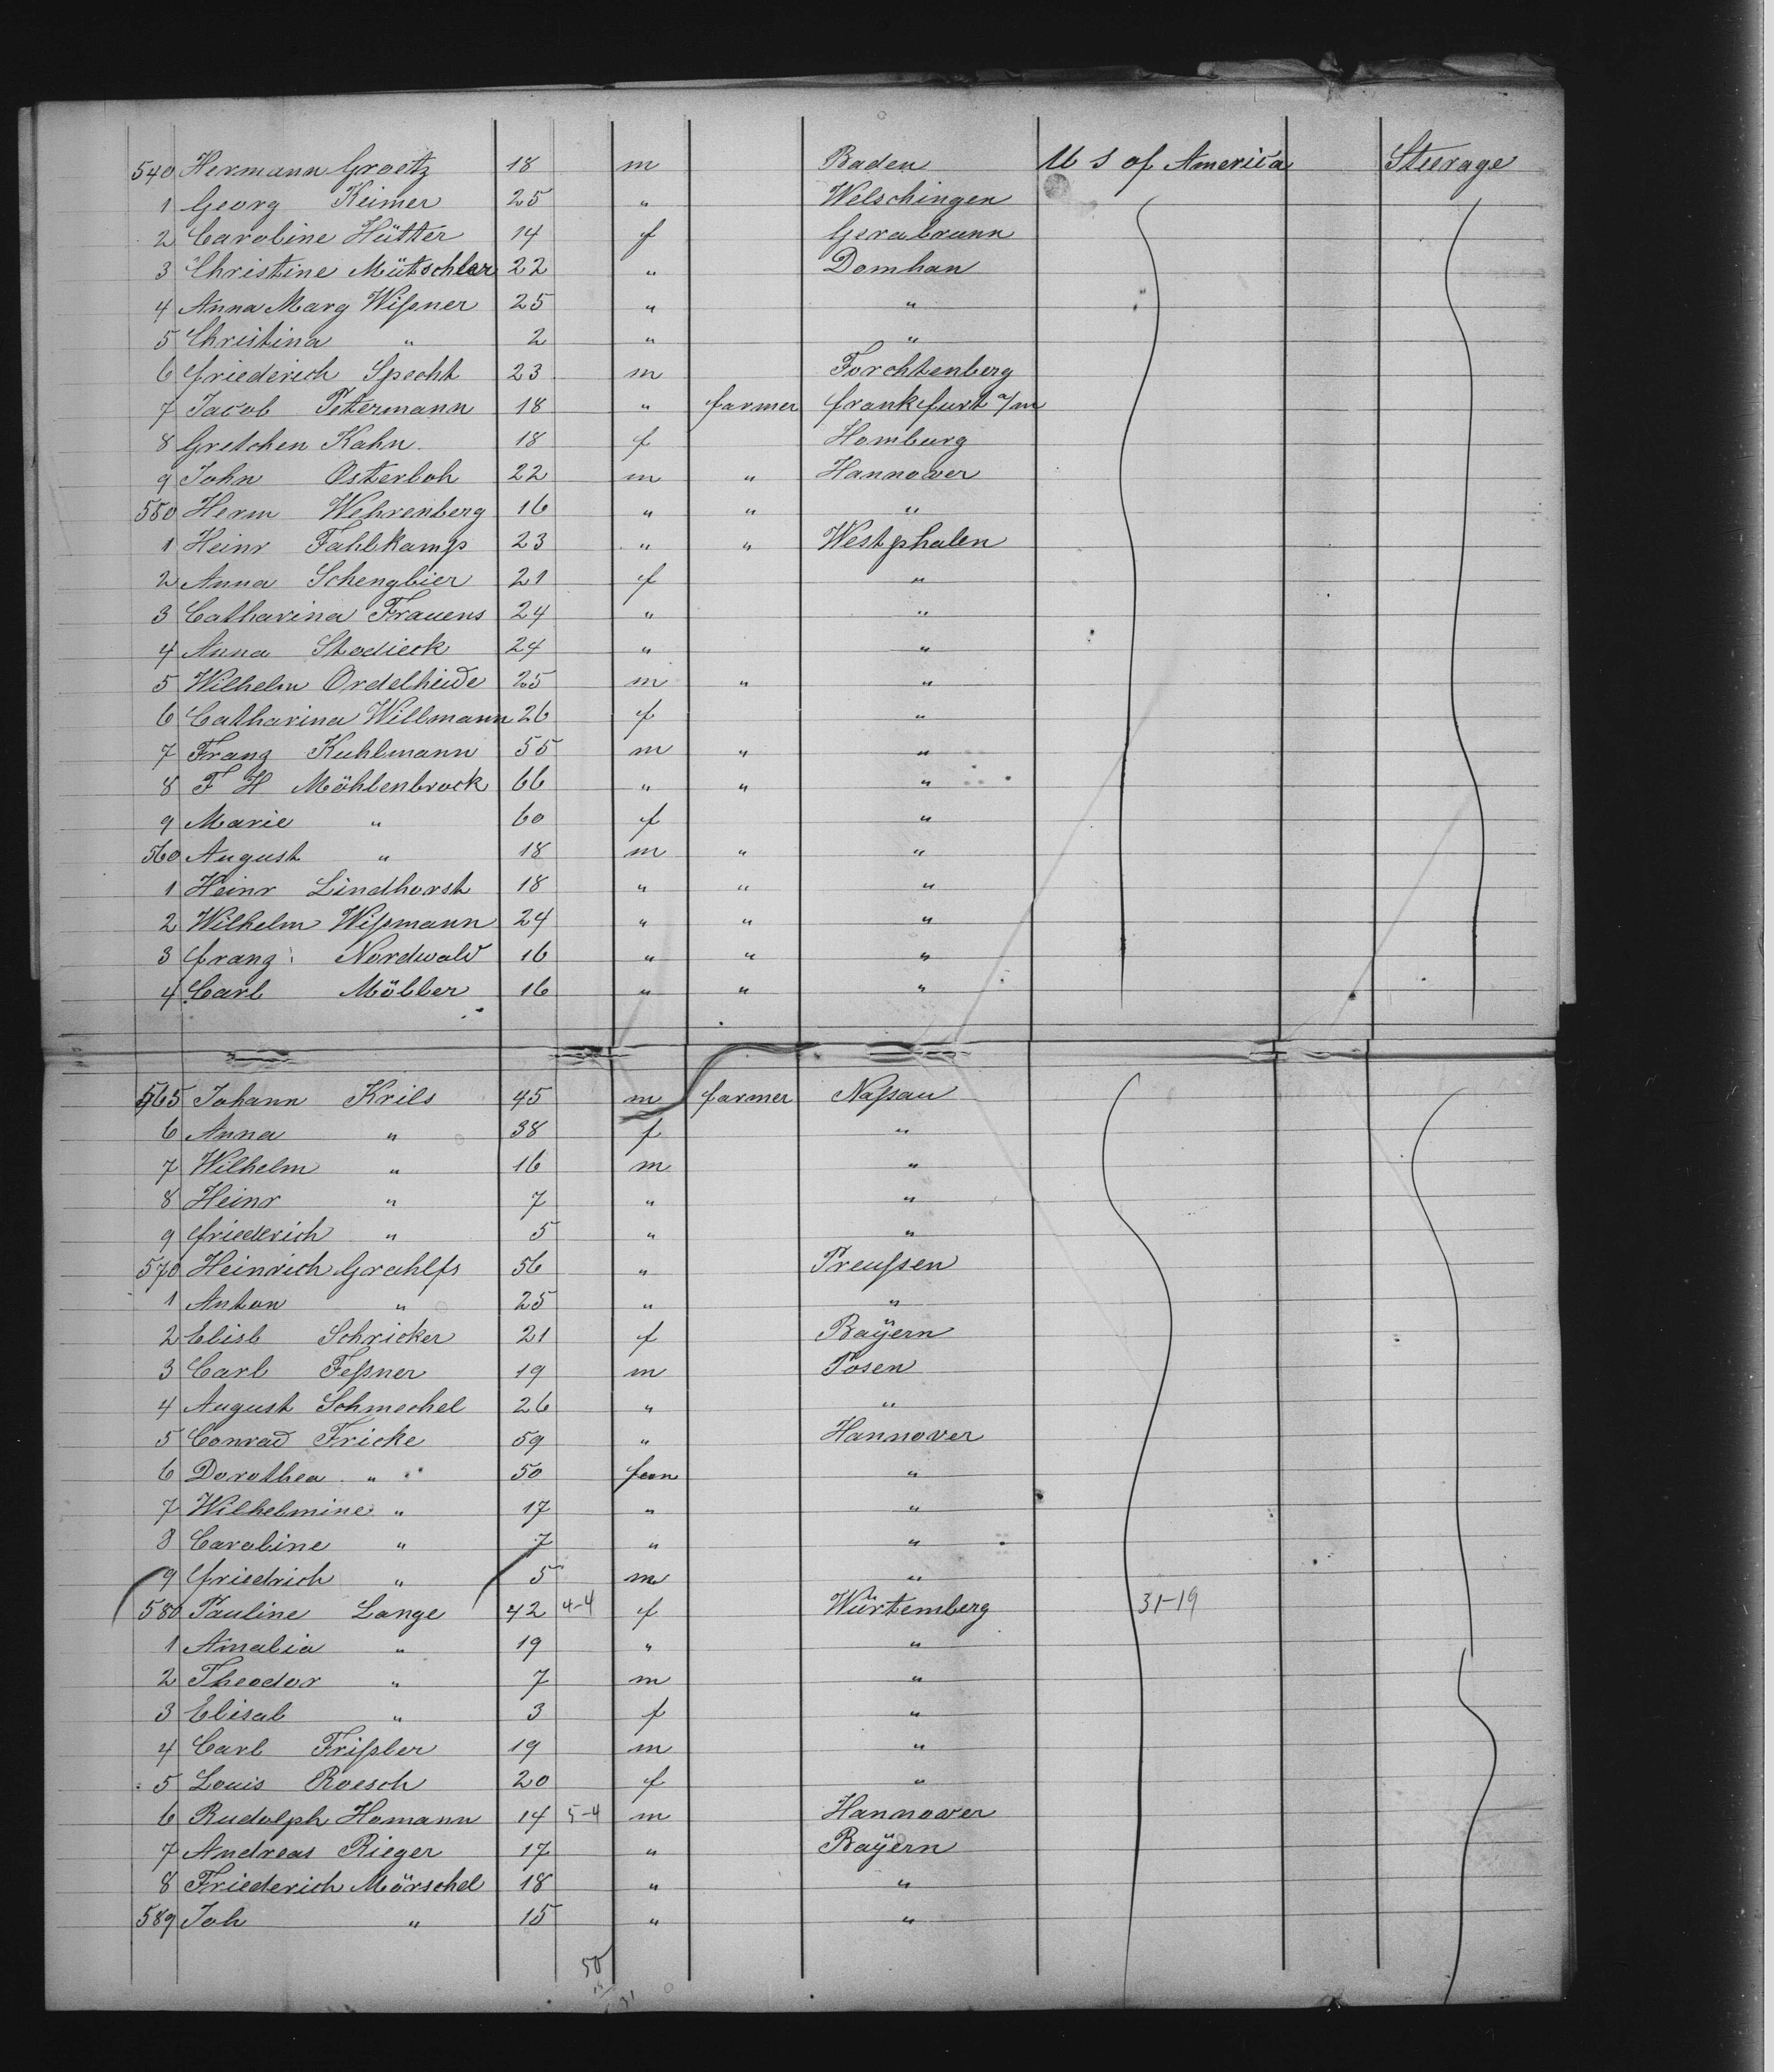 540 Hermann Graetz 18 m Baden U S of America Steerage
1 Georg Keimer 25 " Welschingen
2 Caroline Hütter 14 f Gerabrunn
3 Christine Mütschler 22 " Domhan
4 Anna Marg Wißner 25 " "
5 Christina " 2 " "
6 Friederich Specht 23 m Forchtenberg
7 Jacob Petermann 18 " farmer Frankfurt a/m
8 Gretchen Kahn 18 f Homburg
9 John Osterloh 22 m " Hannover
550 Herm Wehrenberg 16 " " "
1 Heinr Fahlkamp 23 " " Westphalen
2 Anna Schengbier 21 f "
3 Catharina Frauens 24 " "
4 Anna Stodieck 24 " "
5 Wilhelm Ordelheide 25 m " "
6 Catharina Willmann 26 f "
7 Franz Kuhlmann 55 m " "
8 F H Möhlenbrock 66 " " "
9 Marie " 60 f "
560 August " 18 m " "
1 Heinr Lindhorst 18 " " "
2 Wilhelm Wißmann 24 " " "
3 Franz Nordwald 16 " " "
4 Carl Möller 16 " " "
565 Johann Krils 45 m farmer Naßau
6 Anna " 38 f "
7 Wilhelm " 16 m "
8 Heinr " 7 " "
9 Friederich " 5 " "
570 Heinrich Grahlfs 56 " Preußen
1 Anton " 25 " "
2 Elisb Schricker 21 f Baÿern
3 Carl Feßner 19 m Posen
4 August Schmechel 26 " "
5 Conrad Fricke 59 " Hannover
6 Dorothea " 50 fem "
7 Wilhelmine " 17 " "
8 Caroline " 7 " "
9 Friedrich " 5 m "
580 Pauline Lange 42 4-4 f Würtemberg 31-19
1 Amalia " 19 " "
2 Theodor " 7 m "
3 Elisab " 3 f "
4 Carl Frißler 19 m "
5 Louis Roesch 20 f "
6 Rudolph Homann 14 5-4 m Hannover
7 Andreas Rieger 17 " Baÿern
8 Friederich Mörschel 18 " "
589 Joh " 15 " "
50